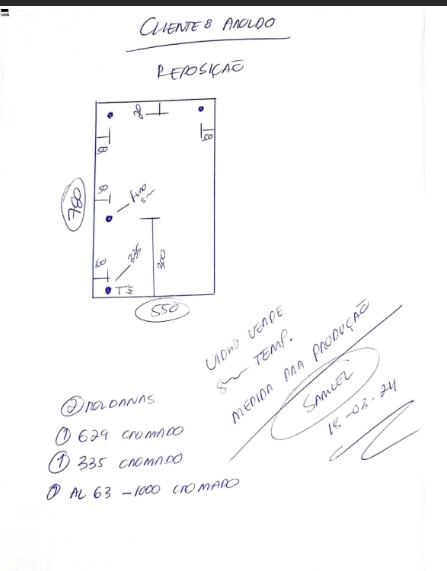 CLIENTE: AROLDO
REPOSIÇÃO
50
50
50
50
FURO
8mm
780
335
300
550
VIDRO VERDE
8mm TEMP.
MEDIDA PRA PRODUÇÃO
SAMUEL
18-03-24
② ROLDANAS
① 629 CROMADO
① 335 CROMADO
① AL 63 - 1000 CROMADO